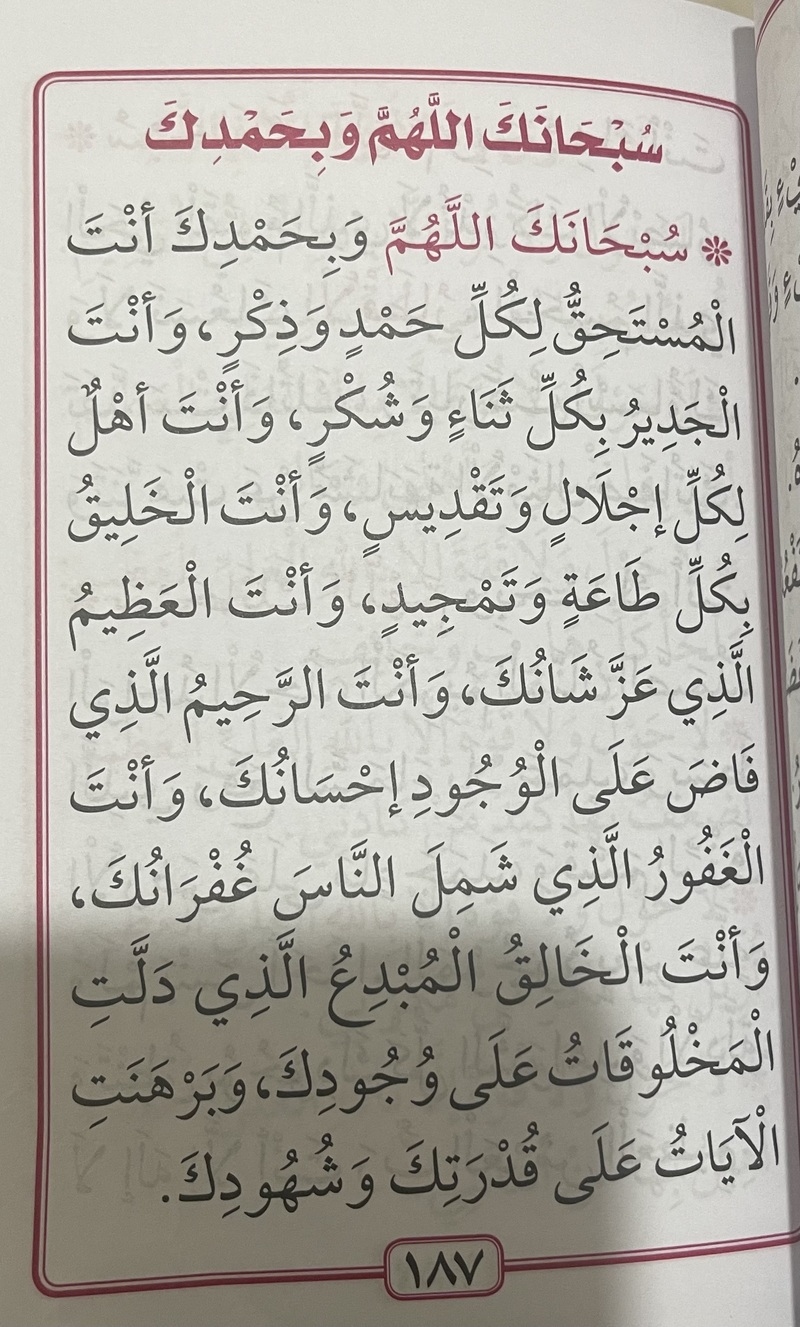 سُبْحَانَكَ اللَّهُمَّ وَبِحَمْدِكَ
❊ سُبْحَانَكَ اللَّهُمَّ وَبِحَمْدِكَ أنْتَ
الْمُسْتَحِقُّ لِكُلِّ حَمْدٍ وَذِكْرٍ، وَأنْتَ
الْجَدِيرُ بِكُلِّ ثَنَاءٍ وَشُكْرٍ، وَأنْتَ أهْلٌ
لِكُلِّ إجْلَالٍ وَتَقْدِيسٍ، وَأنْتَ الْخَلِيقُ
بِكُلِّ طَاعَةٍ وَتَمْجِيدٍ، وَأنْتَ الْعَظِيمُ
الَّذِي عَزَّ شَانُكَ، وَأنْتَ الرَّحِيمُ الَّذِي
فَاضَ عَلَى الْوُجُودِ إحْسَانُكَ، وَأنْتَ
الْغَفُورُ الَّذِي شَمِلَ النَّاسَ غُفْرَانُكَ،
وَأنْتَ الْخَالِقُ الْمُبْدِعُ الَّذِي دَلَّتِ
الْمَخْلُوقَاتُ عَلَى وُجُودِكَ، وَبَرْهَنَتِ
الْآيَاتُ عَلَى قُدْرَتِكَ وَشُهُودِكَ.
١٨٧